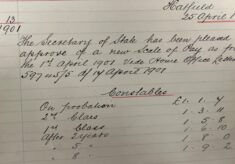 Hatfield
13
25 April 1
1901
The Secretary of State has been pleased
approve of a new Scale of Pay as fro
the 1st April 1901 Vide Home Office Letter
of 17 April 1901
Constables
On probation £1. 1. 7
2nd Class
1st Class 1. 5. 8
After 2 years 1. 6. 10
" 5 " 1. 8. 0
" 8 " 1. 9. 2